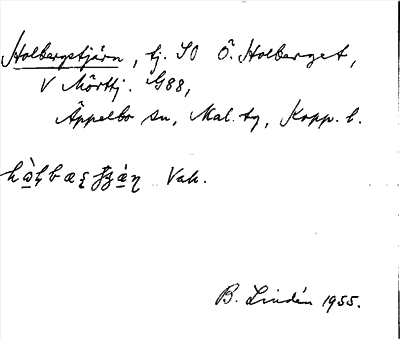 Holbergstjärn, tj. SO Ö. Holberget,
V Mörttj. G88,
Äppelbo sn, Mal. tg, Kopp. l.
Vak.
B. Lindén 1955.